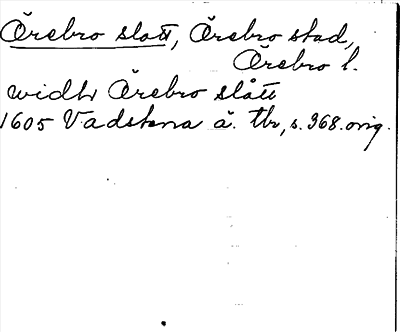 Örebro slott, Örebro stad,
Örebro l.
widh Örebro slått
1605 Vadstena ä. tbr, s. 368. orig.